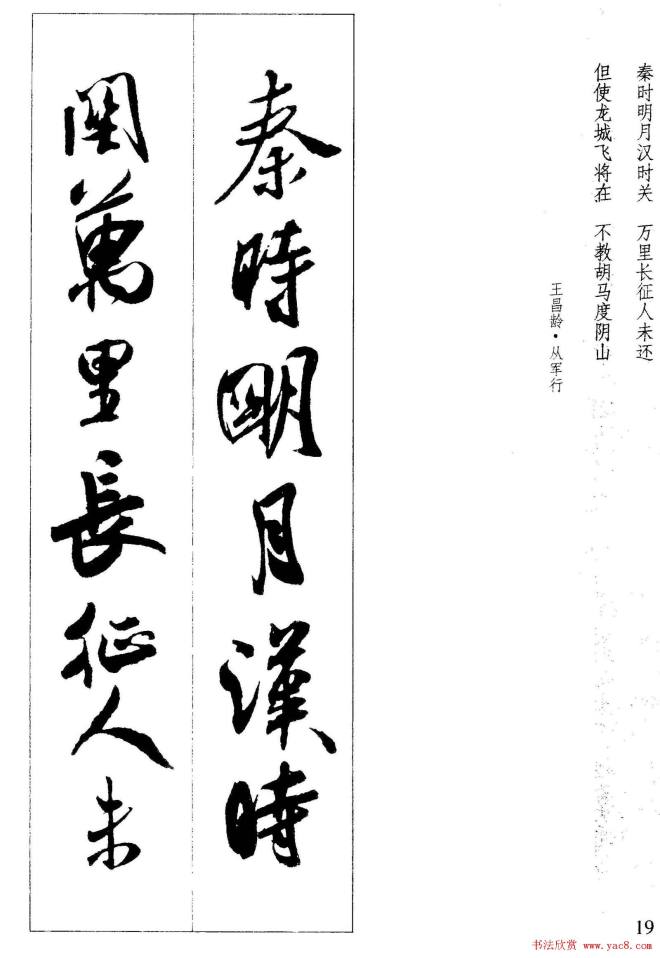 秦时明月汉时关　万里长征人未还
但使龙城飞将在　不教胡马度阴山
王昌龄·从军行
秦時明月漢時
關萬里長征人未
19
书法欣赏 www.yac8.com